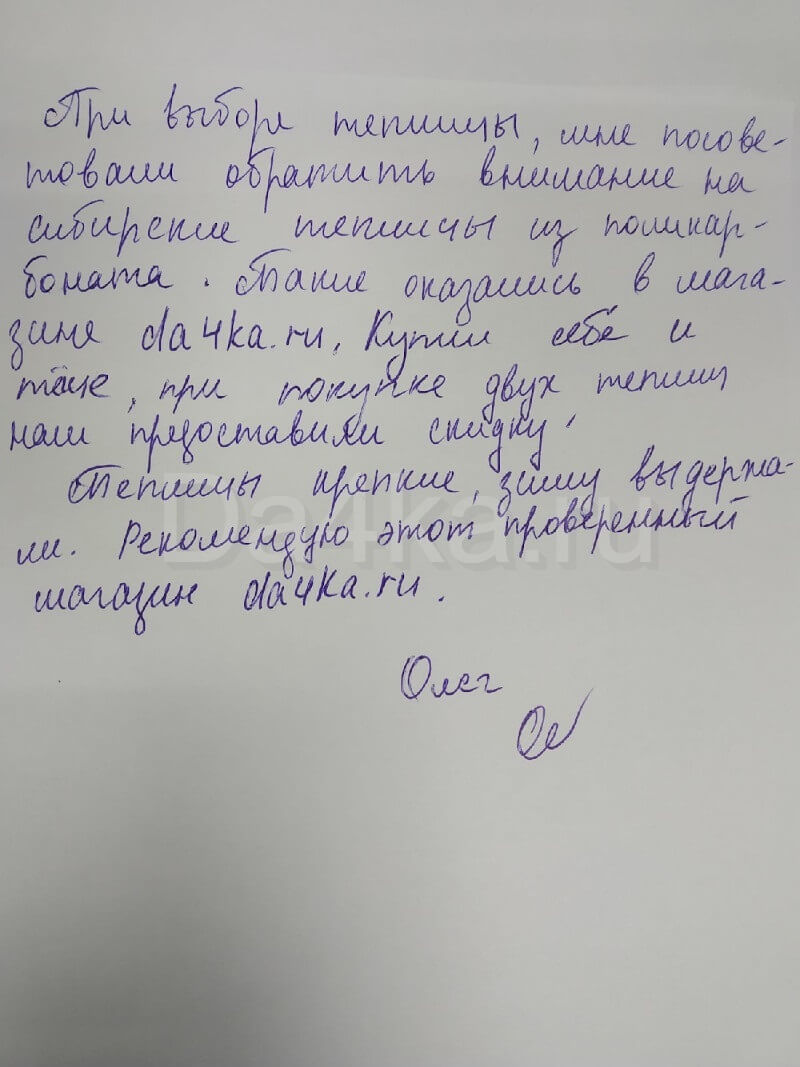 При выборе теплицы, мне посове-
товали обратить внимание на
сибирские теплицы из поликар-
боната. Такие оказались в мага-
зине da4ka.ru, Купил себе и
тёще, при покупке двух теплиц
нам предоставили скидку.
Теплицы крепкие, зиму выдержа-
ли. Рекомендую этот проверенный
магазин da4ka.ru.
Da4ka.ru
Олег